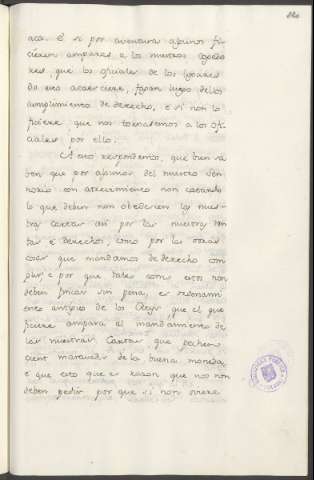 aca. E si por aventura algunos fi-
cieran amparar a los nuestros
que los oficiales de los logares
do eso acaesciere, fagan luego dellos
cumplimiento de derecho, e si non lo
ficiere, que nos tornasemos a los ofi-
ciales por ello.
A eso respondemos, que bien sa-
ben que por algunos del nuestro Sen-
norio con atrevimiento non catando
lo que deben non obedecien las nues-
tras cartas asi por las nuestras ren-
tas e derechos, como por las otras
cosas que mandamos de derecho com-
plir e por que tales como estos non
deben fincar sin pena, es ordenami-
ento antiguo de los Reyes que el que
ficiere ampara al mandamiento de
las nuestras Cartas que peche
cient maravedis de la buena moneda,
e que esto que es razon que nos non
deben pedir por que si non oviere